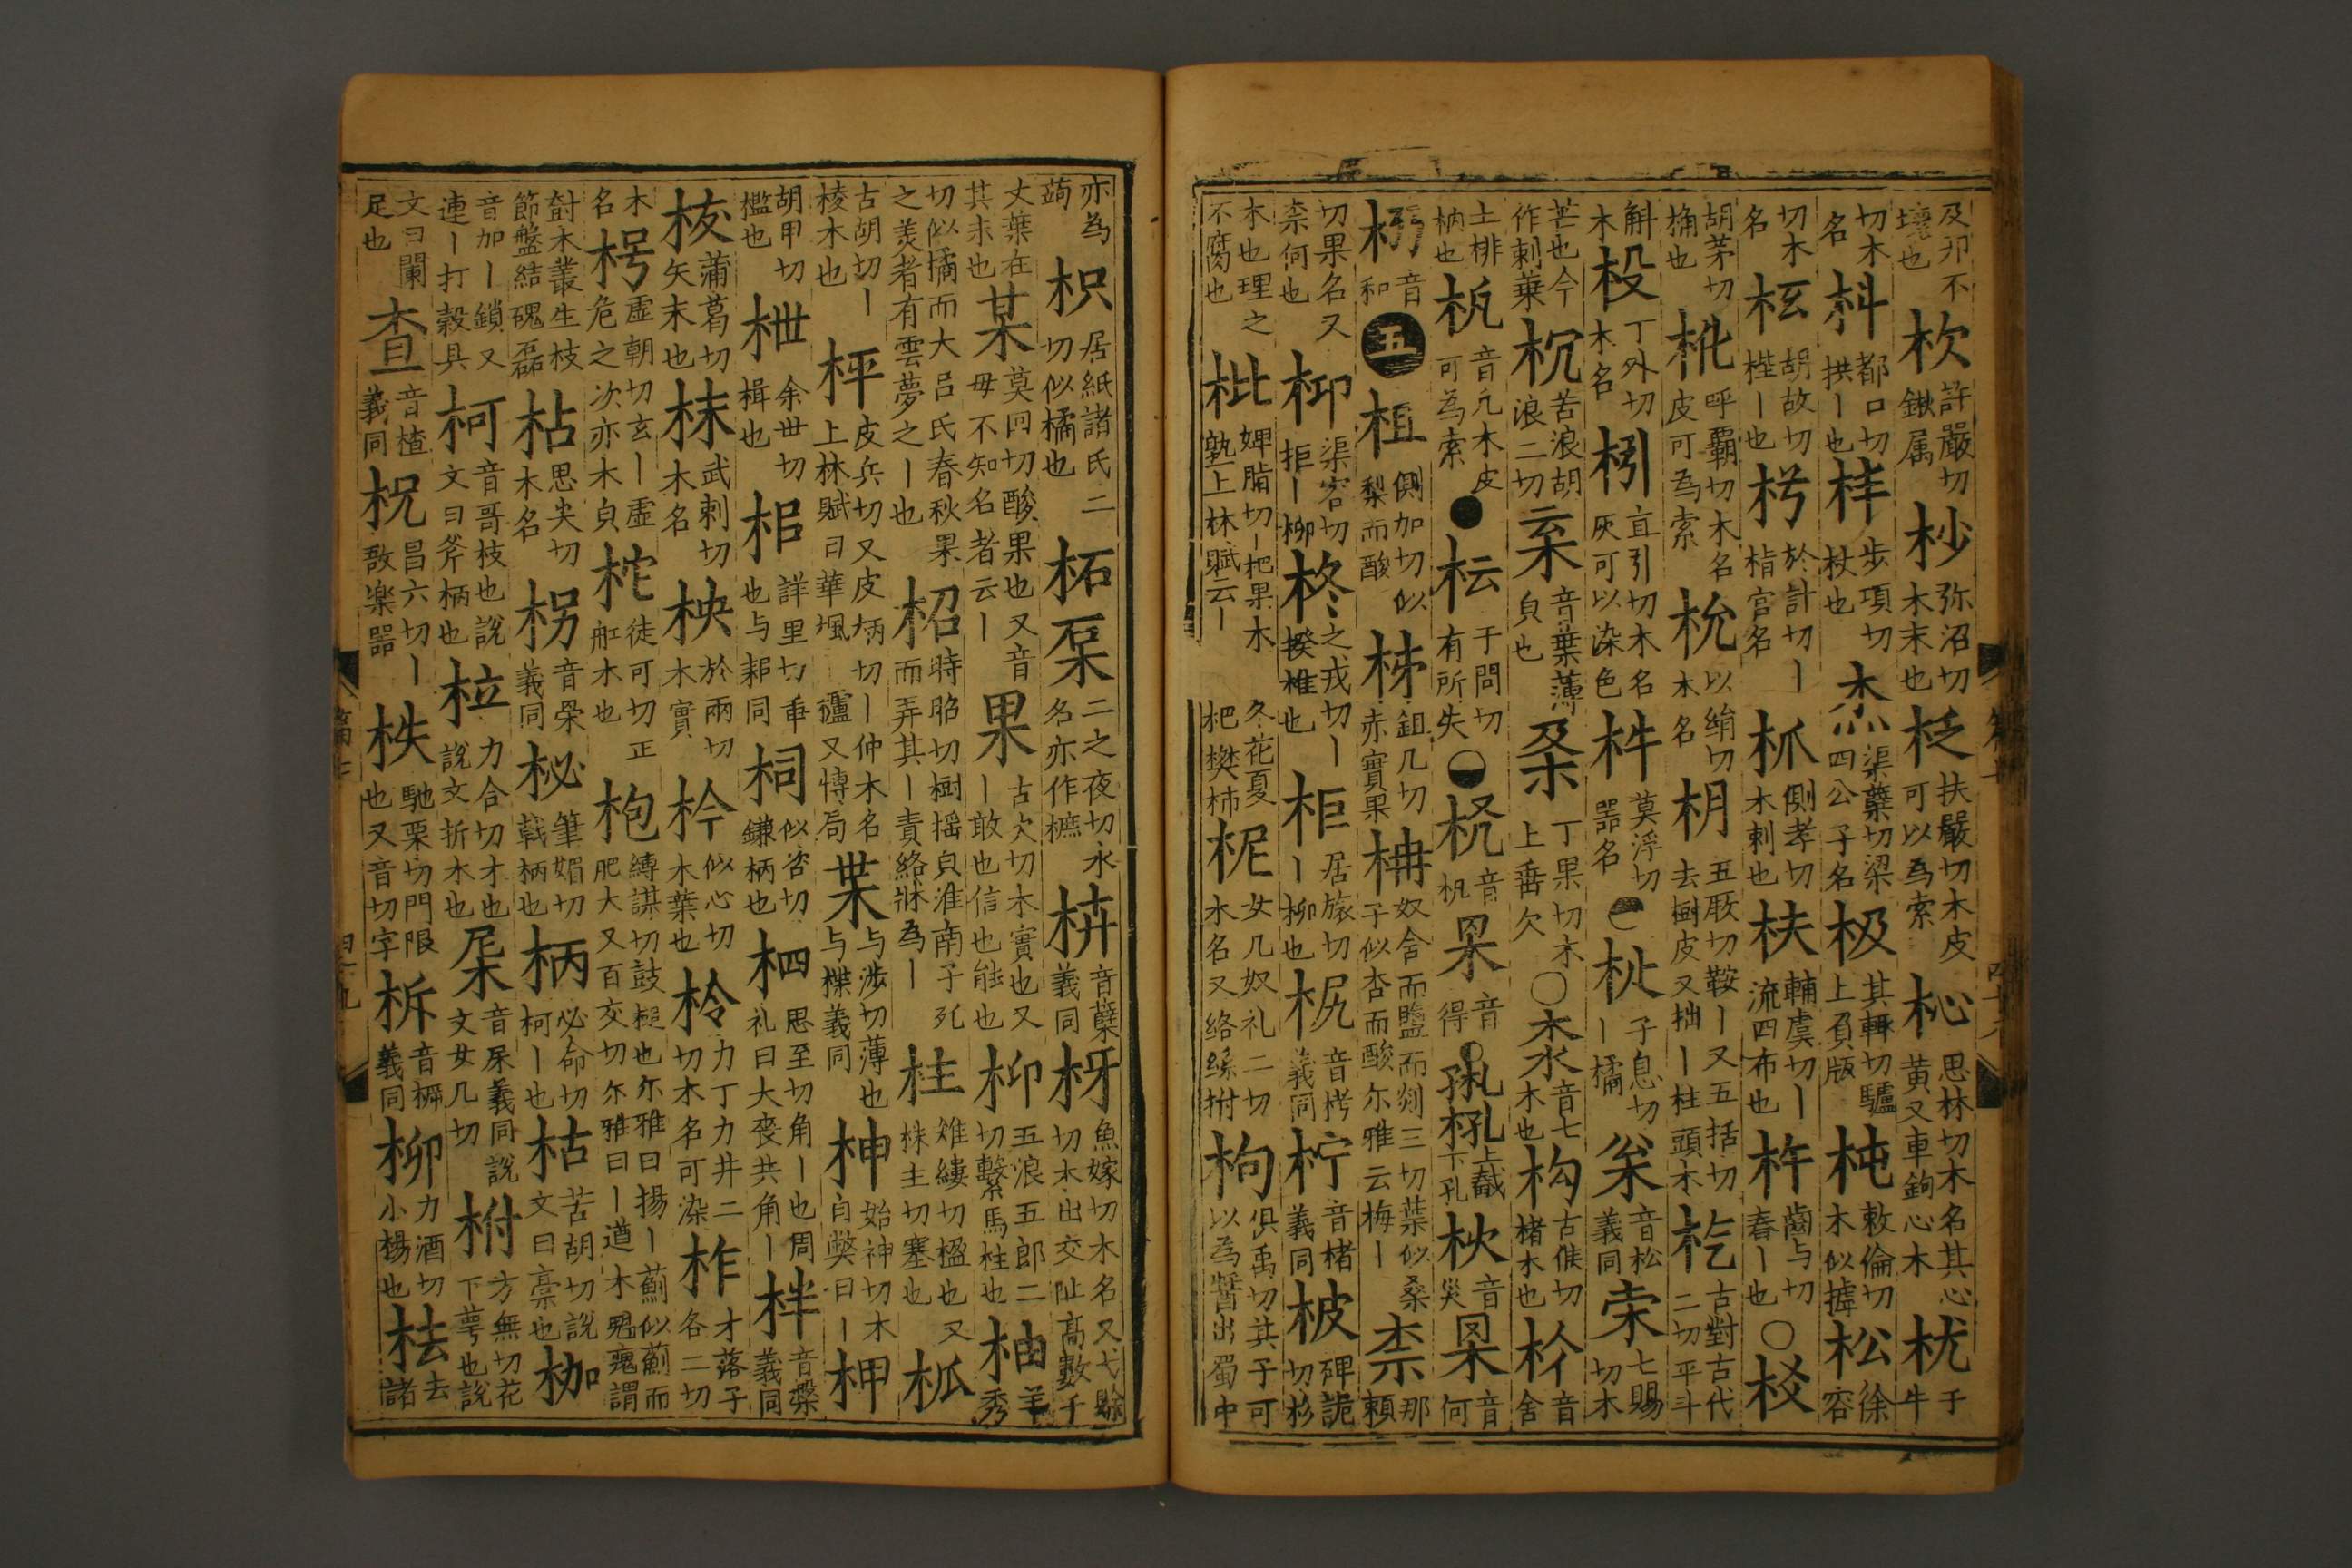 及卯不壊也 杴 許嚴切鍬属 杪 弥沼切木末也 柉 扶嚴切木皮可以為索 杺 思林切木名其心黄又車鉤心木 于牛
切木名 枓 都口切拱丨也 步項切杖也 杰 渠蘖切梁四公子名 极 其輒切驢上負版 杶 敕倫切木似 松 徐容
切木名 枑 胡故切梐丨也 枍 於計切丨栺宮名 側孝切木刺也 枎 輔虞切丨流四布也 杵 齒与切舂丨也 〇
胡茅切也 杹 呼霸切木名皮可為索 以絹切木名 枂 五厥切鞍丨又五括切去樹皮又柮丨柱頭木 杚 古對古代二切平斗
斛木 杸 丁外切木名 直引切木名灰可以染色 莫浮切器名 杫 子息切丨橘 枀 音松義同 七賜切木
芒也今作刺棄 苦浪胡浪二切 枽 音葉薄皃也 朶 丁果切木上垂欠 〇 音七木也 构 古 切楮木也 音舍
土棑枘也 音元木皮可為索 ● 枟 于問切有所失 音杌 音得 上截下孔 音災 音何
音和 五 柤 側加切似梨而酸 鉏几切赤實果 柟 奴含而鹽而剡三切葉似桑子似杏而酸尔雅云梅丨 柰 那頼
切果名又柰何也 渠容切丨柳 柊 之戎切丨楑椎也 柜 居旅切丨柳也 音栲義同 柠 音楮義同 柀 碑詭切杉
木也理之不腐也 枇 婢脂切丨杷果木冬花夏熟上林賦云丨杷 柿 柅 女几奴礼二切木名又絡絲柎 枸 俱禹切其子可以為醤出蜀中
亦為蒟 枳 居紙諸氏二切似橘也 柘 䂞 二之夜切木名亦作樜 音蘖義同 枒 魚嫁切木名又弋賒切木出交阯高數千
丈葉在其末也 某 莫回切酸果也又音母不知名者云丨 果 古欠切木實也又丨敢也信也能也 枊 五浪五郎二切繫馬柱也 柚 羊秀
切似橘而大吕氏春秋果之美者有雲夢之丨也 柖 時昭切樹揺皃淮南子死而弄其丨責絡牀為丨 柱 雉縷切楹也又株主切塞也 柧
古胡切丨棱木也 枰 皮兵切又皮病切丨仲木名上林賦曰華楓丨櫨又博局 枼 与涉切薄也与楪義同 柛 始神切木自斃曰丨 柙
胡甲切檻也 枻 余世切楫也 梠 詳里切耒也与耜同 柌 似咨切鎌柄也 柶 思至切角丨也周礼曰大喪共角丨 柈 音槃義同
柭 蒲葛切矢末也 枺 武剌切木名 柍 於兩切木實 似心切木葉也 柃 力丁力井二切木名可染 柞 才落子各二切
木名 枵 虚朝切玄丨虚危之次亦木皃 柁 徒可切正舡木也 枹 縛謀切鼓槌也尔雅曰楊丨薊似薊而肥大又百交切尔雅曰丨遒木魁瘣謂
𣗳木叢生枝節盤結磈磊 枮 思 切木名 枴 義同 柲 筆媚切戟柄也 柄 必命切柯丨也 枯 苦胡切說文曰槀也 枷
音加丨鎖又連丨打穀具 柯 音哥枝也說文曰斧柄也 柆 力合切才也說文折木也 杘 音 義同說文女几切 柎 方無切花下萼也說
文曰闌足也 查 音楂義同 柷 昌六切丨敔樂器 柣 馳栗切門限也又音切字 柝 義同 柳 力酒切小楊也 去諸